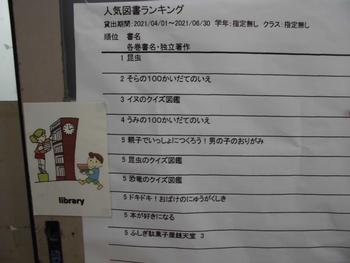 人気図書ランキング
貸出期間:2021/04/01~2021/06/30 学年:指定無し クラス:指定無し
順位 書名
各巻書名・独立著作
1 昆虫
2 そらの100かいだてのいえ
3 イヌのクイズ図鑑
4 うみの100かいだてのいえ
5 親子でいっしょにつくろう!男の子のおりがみ
5 昆虫のクイズ図鑑
5 恐竜のクイズ図鑑
5 ドキドキ!おばけのにゅうがくしき
5 本が好きになる
5 ふしぎ駄菓子屋銭天堂 3
library